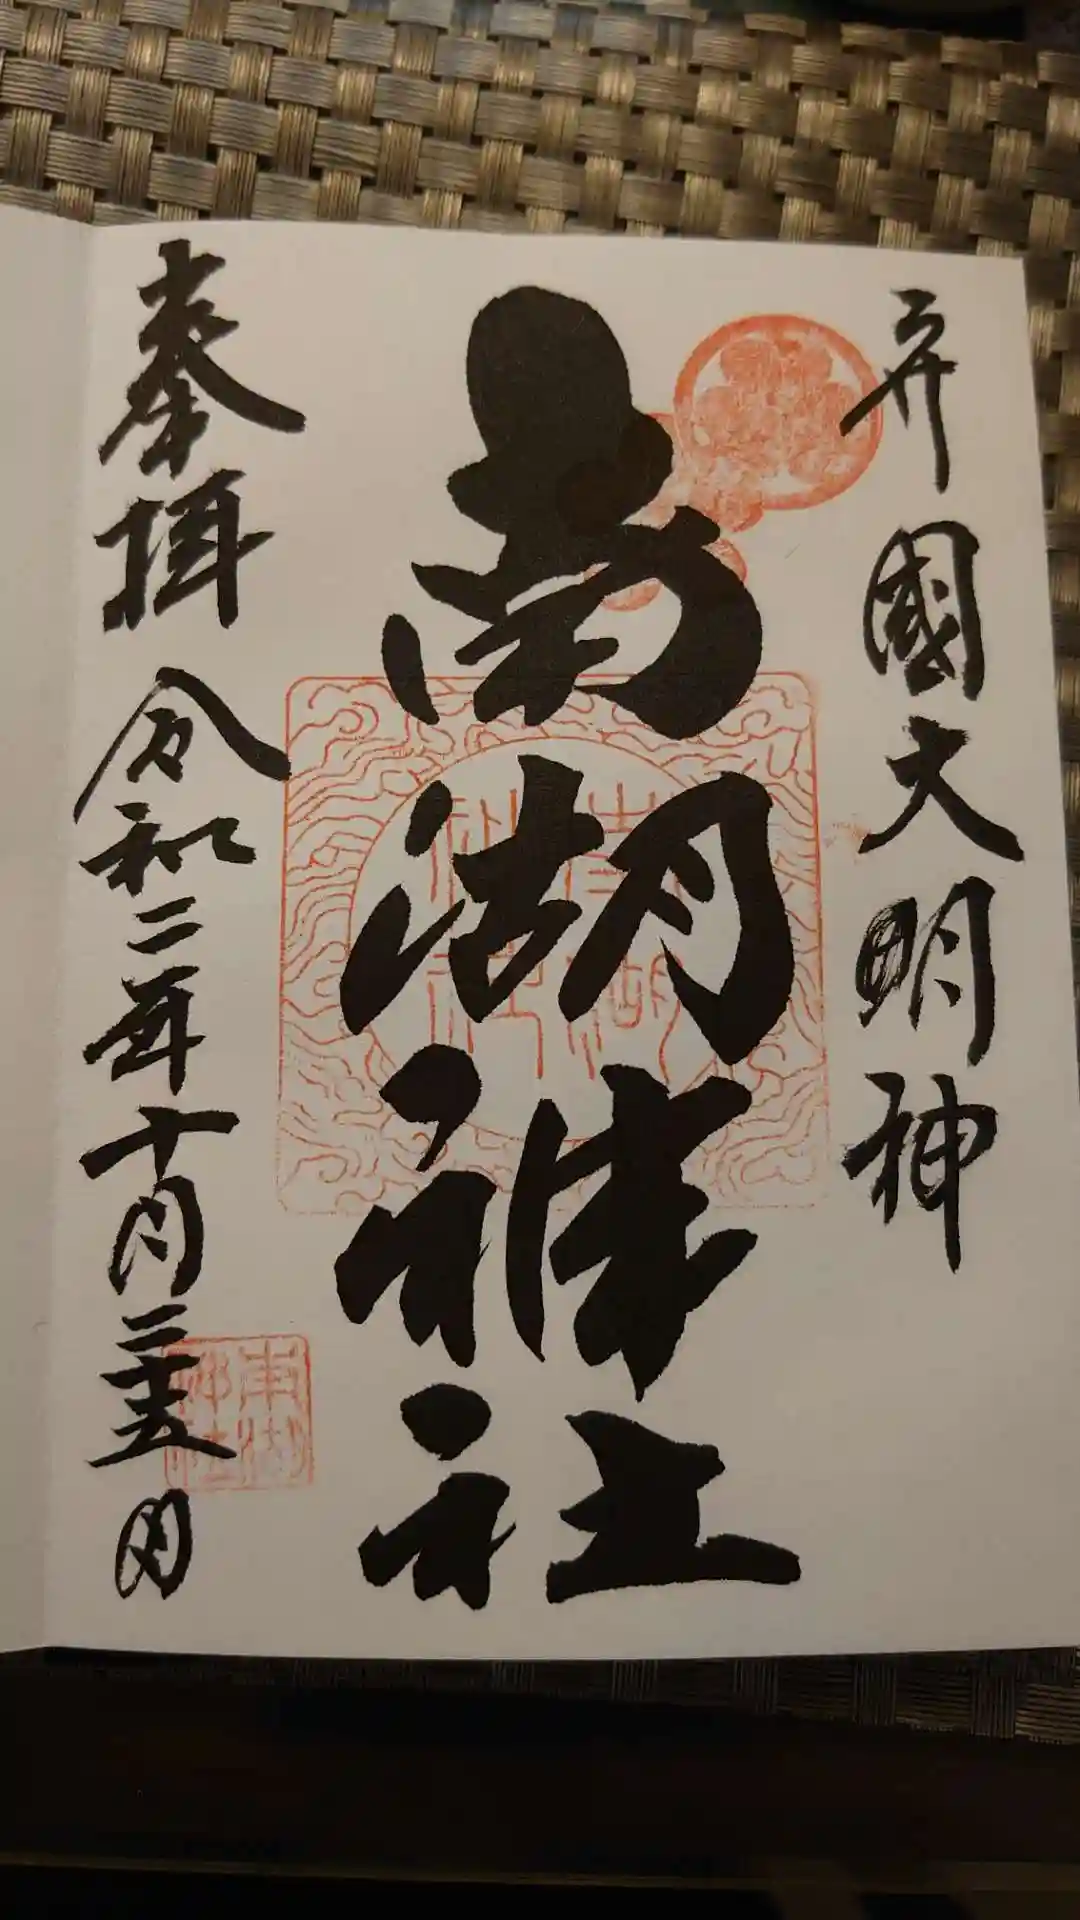 守國大明神
南湖神社
奉拝 令和二年十月二十五日
南湖神社
南湖神社